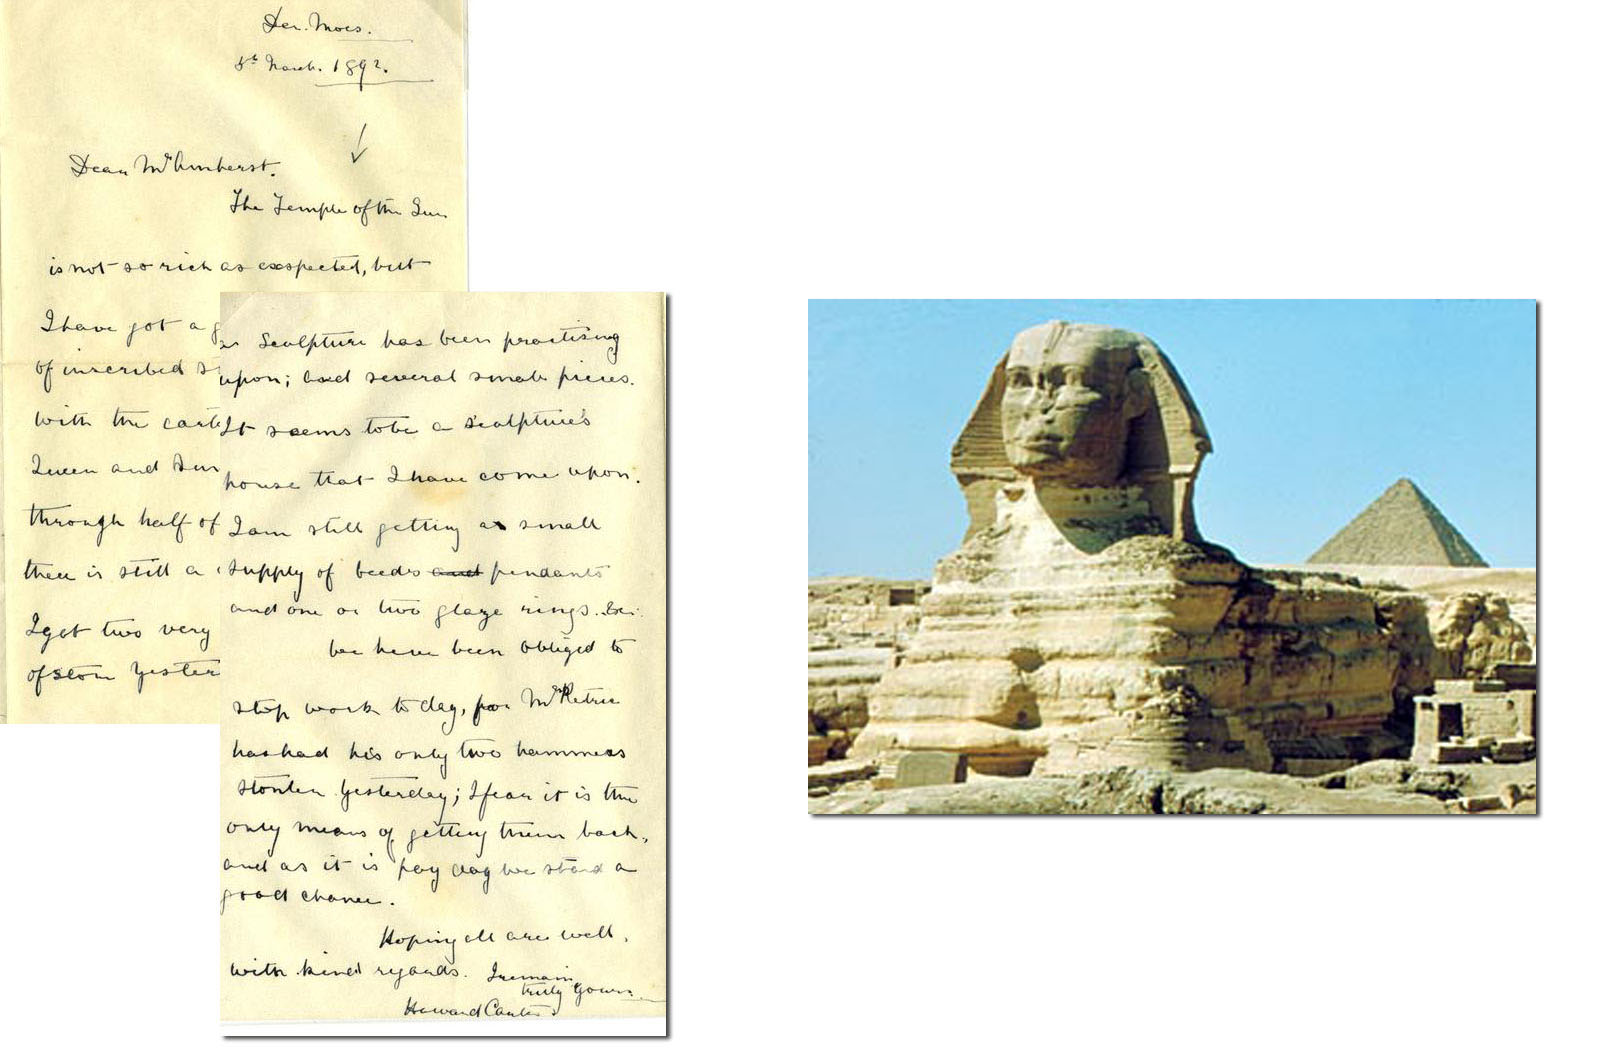 Der. Moes.
5th March. 1892.
Dear Mr Amherst.
The Temple of the Sun
is not so rich as exspected, but
I have got a g
of inscribed s
with the cart
Queen and Sun
through half of
there is still a
I get two very
of stone yester
sculpture has been practising
upon; and several small pieces.
It seems to be a sculpture's
house that I have come upon.
I am still getting a small
supply of beeds and pendants
and one or two glaze rings.
We have been obliged to
stop work to day, for Mr Petrie
has had his only two hammers
stonlen yesterday; I fear it is the
only means of getting them back,
and as it is pay day we stand a
good chance.
Hoping all are well,
with kind regards. I remain
truly yours
Howard Carter